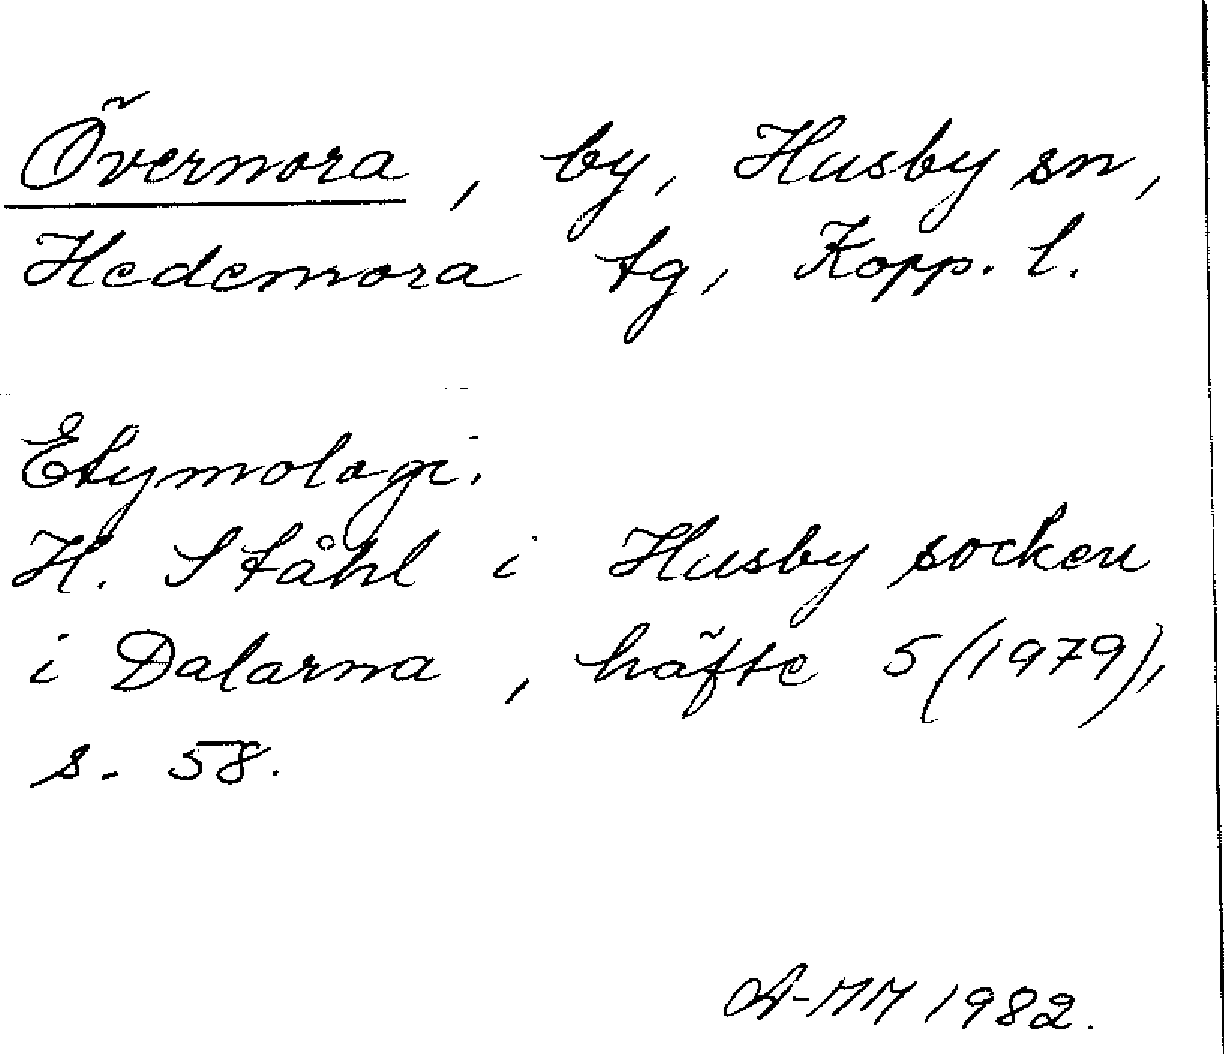 Övernora, by, Husby sn,
Hedemora tg, Kopp. l.
Etymologi.
H. Ståhl i Husby socken
i Dalarna, häfte 5 (1979),
s. 58.
A-MM 1982.